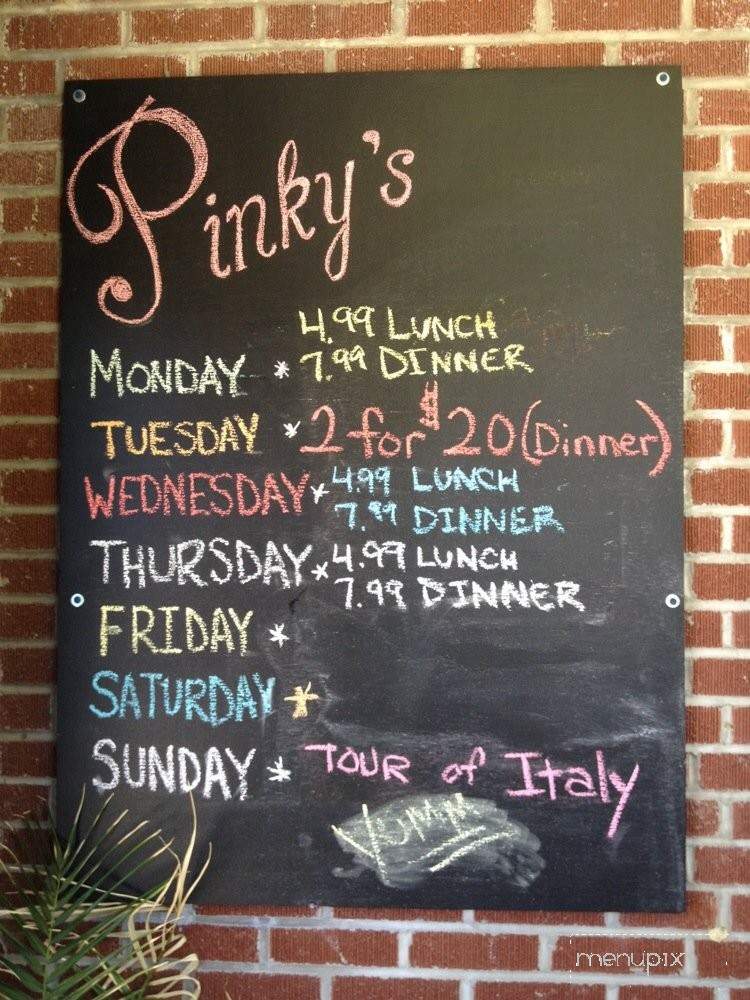 Pinky's
4.99 LUNCH
MONDAY * 7.99 DINNER
TUESDAY * 2 for $20 (Dinner)
WEDNESDAY * 4.99 LUNCH
7.99 DINNER
THURSDAY * 4.99 LUNCH
7.99 DINNER
FRIDAY *
SATURDAY *
SUNDAY * TOUR of Italy
YUMM
menupix